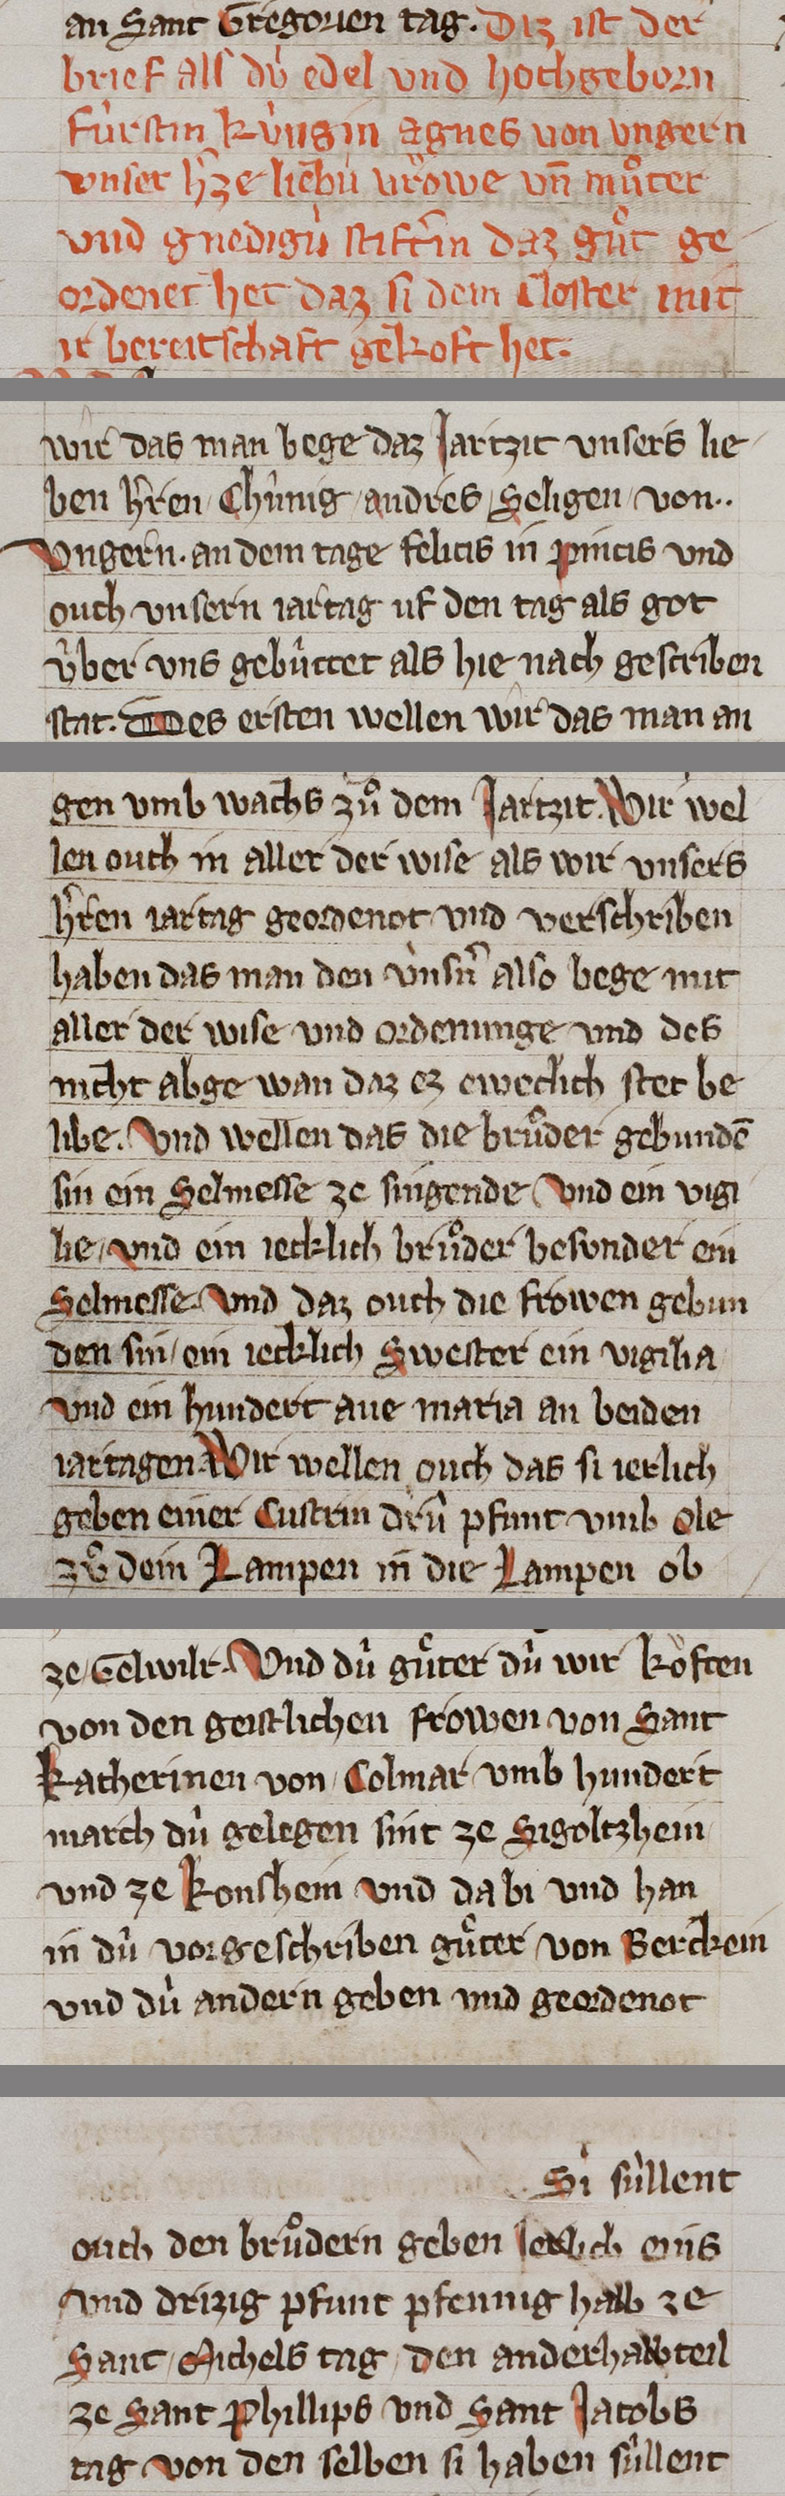 an Sant Gregorien tag. Diz ist der
brief als dv̍ edel vnd hochgeborn
fu̍rstin kv̍ngin agnes von vngern
vnser h̄ze liebu̍ vrowe vn̄ můter
vnd gnedigu̍ stift̄in daz gůt ge
ordenet het daz si dem Closter mit
ir bereitschaft gekoft het.
wir das man bege daz Jartzit vnsers lie
ben h̄ren Chu̍nig andres Seligen von..
vngern. an dem tage felicis in pincis vnd
ouch vnsern iartag uf den tag als got
v̍ber vns gebu̍ttet als hie nach geschriben
stat. Des ersten wellen wir das man an
gen vmb wachs zů dem Jartzit. Wir wel
len ouch in aller der wise als wir vnsers
h̄ren iartag geordenot vnd verschriben
haben das man den v̍nsn̄ also bege mit
aller der wise vnd ordenunge vnd des
nicht abge wan daz ez eweclich stet be
libe. Vnd wellen das die brůder gebundē
sin ein Selmesse ze singende vnd ein vigi
lie vnd ein iecklich brůder besonder ein
Selmesse. Vnd daz ouch die frowen gebun
den sin ein iecklich Swester ein vigilia
vnd ein hundert aue maria an beiden
iartagen. Wir wellen ouch das si ierlich
geben einer Custrin dru̍ pfunt vmb ole
zv̊ dem Lampen in die Lampen ob
ze Gelwilr. Vnd du̍ gůter du̍ wir koften
von den geistlichen frowen von Sant
Katherinen von Colmar vmb hundert
march du̍ gelegen sint ze Sigoltzhein
vnd ze konshein vnd da bi vnd han
in du̍ vorgeschriben gůter von Berckein
vnd du̍ andern geben vnd geordenot
Si su̍llent
ouch den brůdern geben Jerlich eins
vnd drizig pfunt pfennig halb ze
Sant Michels tag den anderhalbteil
ze Sant Phillips vnd Sant Jacobs
tag von den selben si haben su̍llent